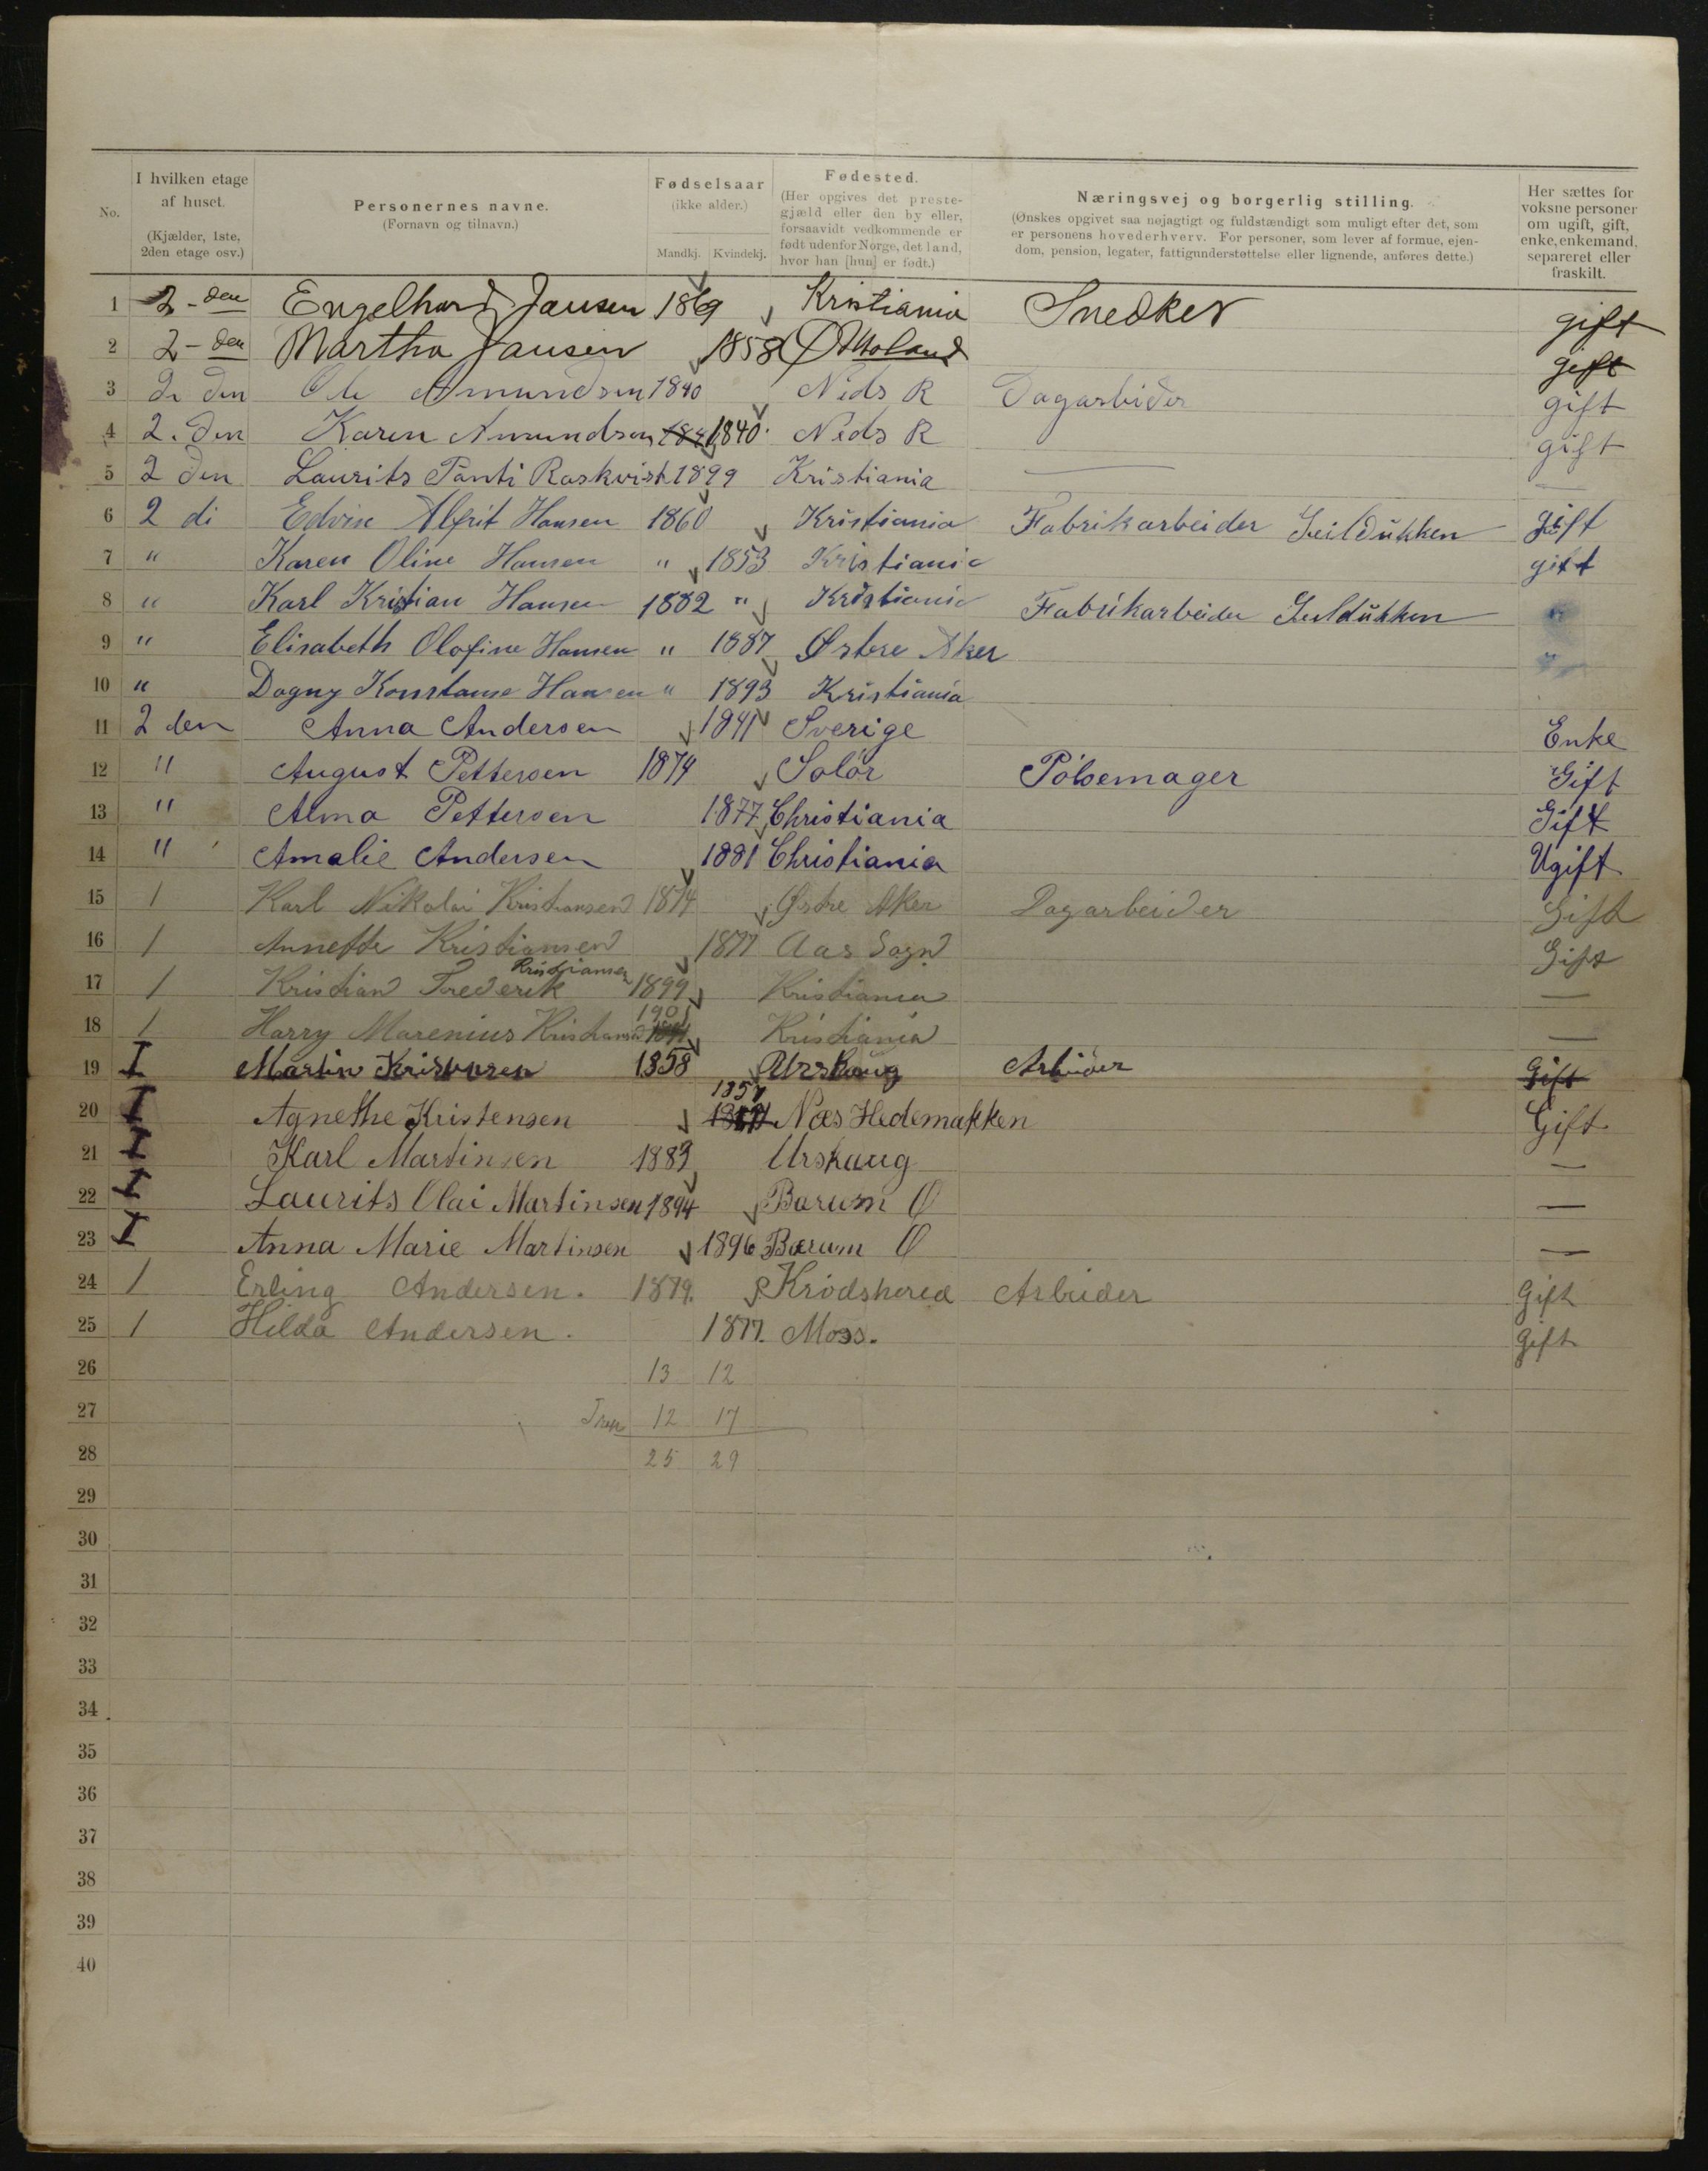 No. | I hvilken etage af huset. (Kjælder, 1ste, 2den etage osv.) | Personernes navne. (Fornavn og tilnavn.) | Fødselsaar (ikke alder.) Mandkj. Kvindekj. | Fødested. (Her opgives det prestegjæld eller den by eller, forsaavidt vedkommende er født udenfor Norge, det land, hvor han [hun] er født.) | Næringsvej og borgerlig stilling. (Ønskes opgivet saa nøjagtigt og fuldstændigt som muligt efter det, som er personens hovederhverv. For personer, som lever af formue, ejendom, pension, legater, fattigunderstøttelse eller lignende, anføres dette.) | Her sættes for voksne personer om ugift, gift, enke, enkemand, separeret eller fraskilt.
1 2-den Engelhard Jansen 1869 Kristiania Snedker gift
2 2-den Martha Jansen 1858 gift
3 2 den Ole Amundsen 1840 Neds R Dagarbider gift
4 2. den Karen Amundsen 1840 Neds R gift
5 2 den Laurits Panti Raskvist 1899 Kristiania —
6 2 di Edvin Alfrit Hansen 1860 Kristiania Fabrikarbeider Seildukken gift
7 " Karen Oline Hansen " 1853 Kristiania gift
8 " Karl Kristian Hansen 1882 " Kristiania Fabrikarbeider Seildukken
9 " Elisabeth Olofine Hansen " 1887 Østere Aker
10 " Dagny Konstanse Hansen " 1893 Kristiania
11 2 den Anna Andersen 1841 Sverige Enke
12 " August Pettersen 1874 Solör Pölsemager Gift
13 " Alma Pettersen 1877 Christiania Gift
14 " Amalie Andersen 1881 Christiania Ugift
15 1 Karl Nikolai Kristiansen 1874 Østre Aker Dagarbeider Gift
16 1 Annette Kristiansen 1877 Aas Sogn Gift
17 1 Kristian Frederik Kristiansen 1899 Kristiania —
18 1 Harry Marenius Kristiansen 1901 Kristiania —
19 I Martin Kristensen 1858 Urskaug Arbeider Gift
20 I Agnethe Kristensen 1857 Næs Hedemarken Gift
21 I Karl Martinsen 1889 Urskaug —
22 I Laurits Olai Martinsen 1894 Bærum Ø —
23 I Anna Marie Martinsen 1896 Bærum Ø —
24 1 Erling Andersen. 1879. Krödshered Arbeider Gift
25 1 Hilda Andersen. 1877. Moss. Gift
26 13 12
27 12 17
28 25 29
29
30
31
32
33
34
35
36
37
38
39
40